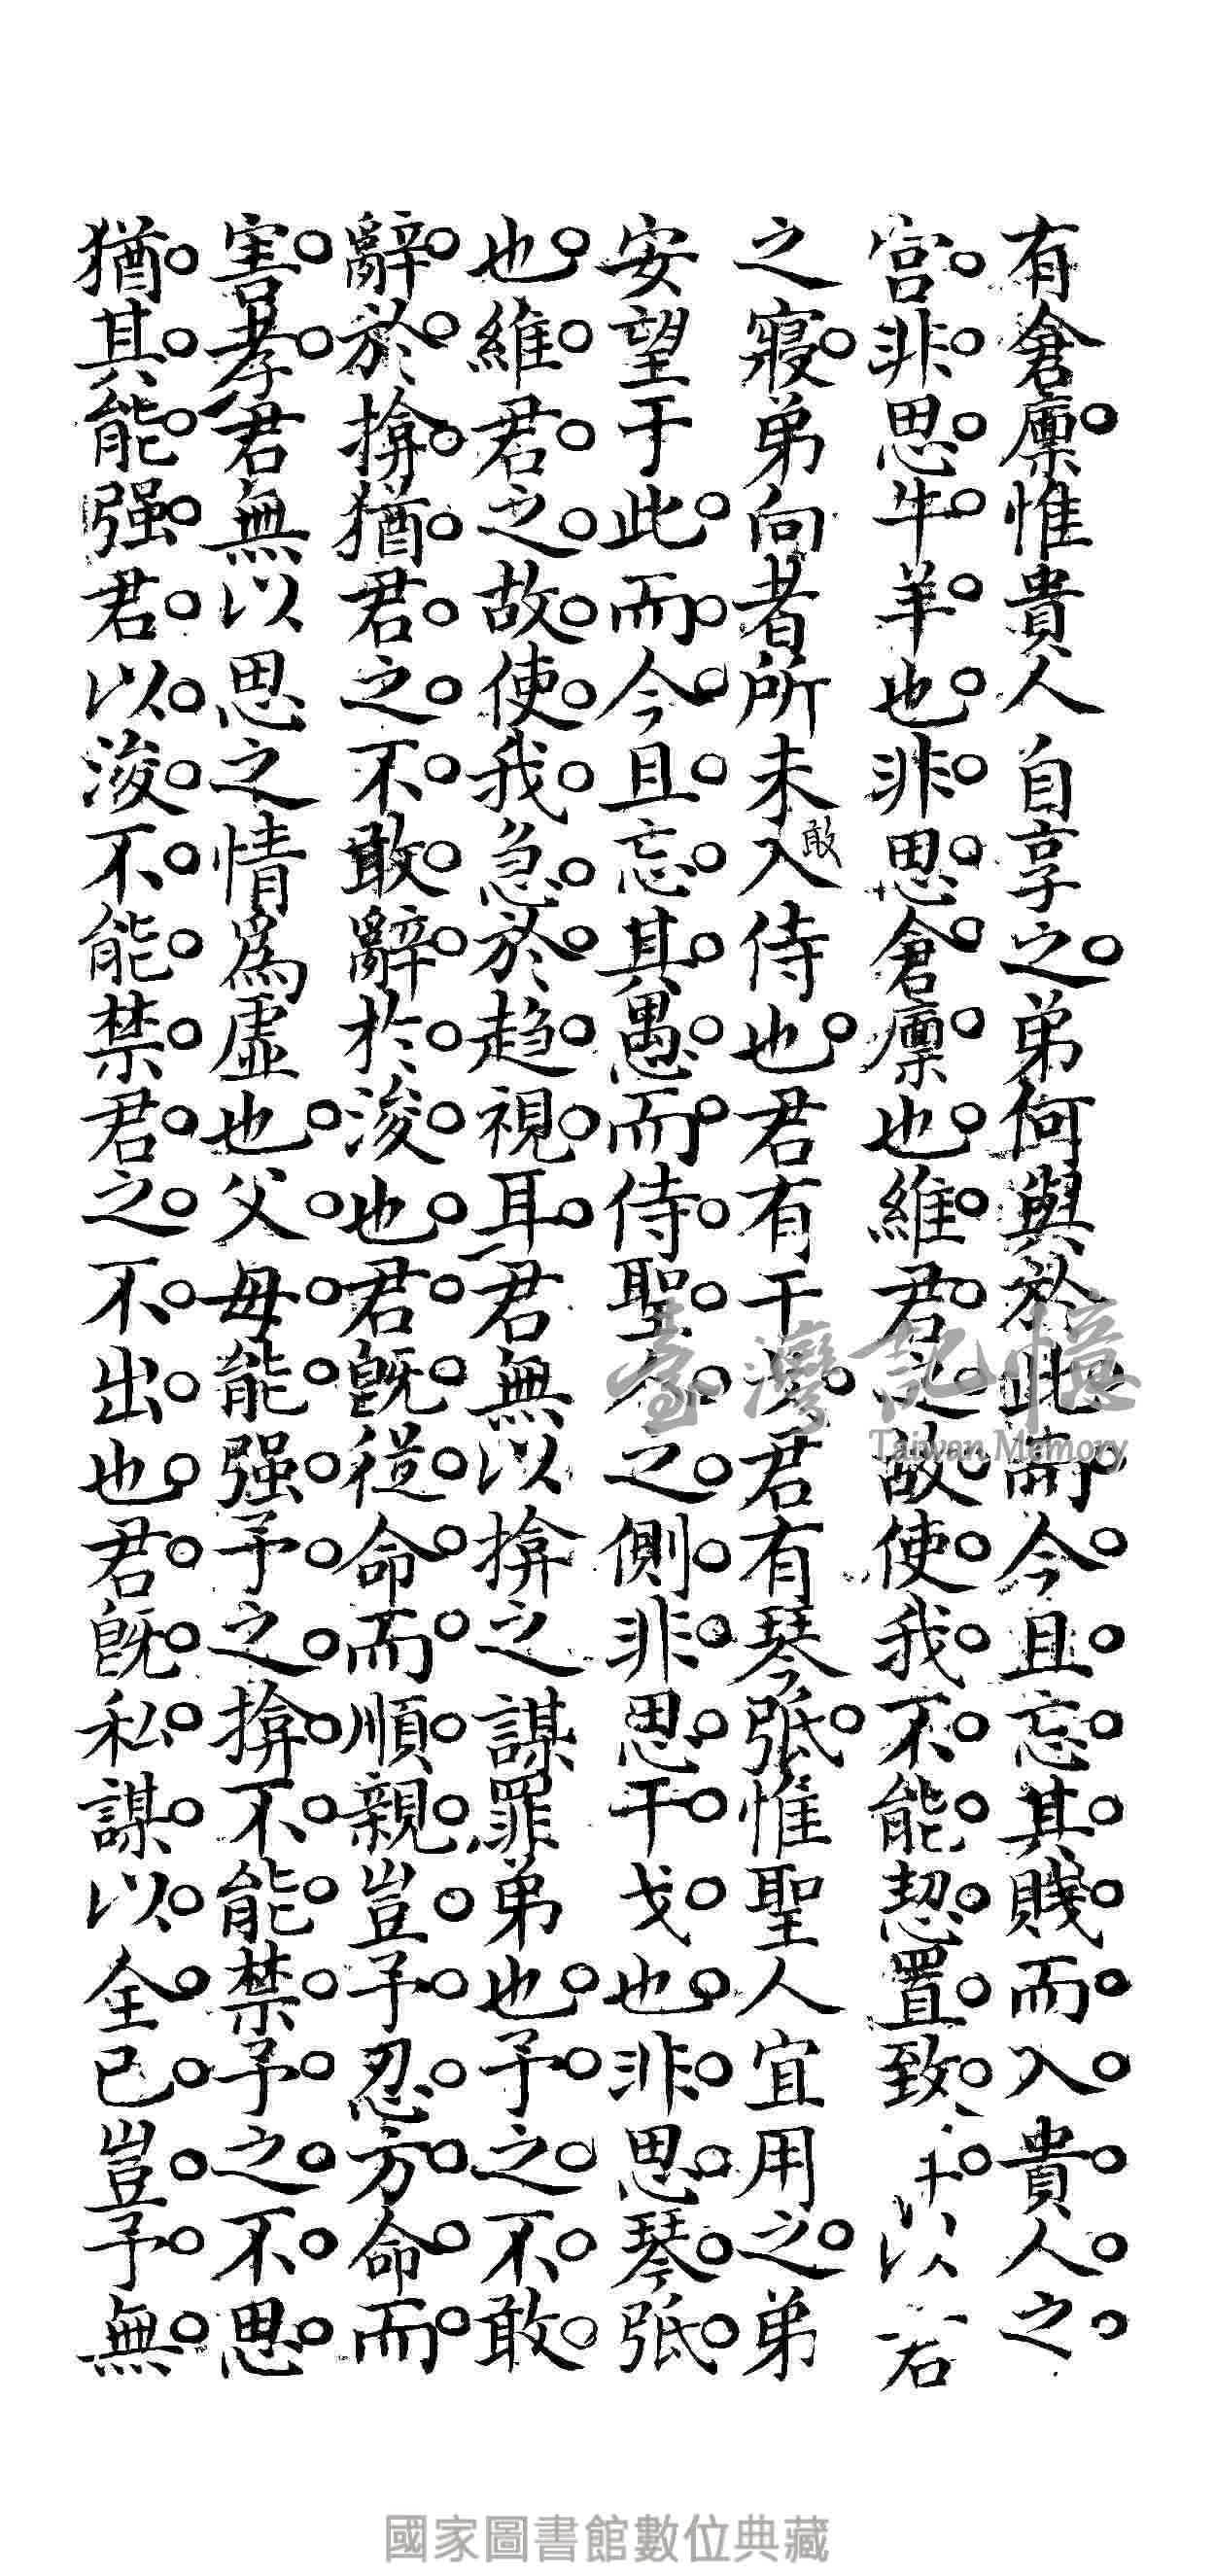 有倉廩惟貴人自享之弟何與於此而今且忘其賤而入貴人之
宮非思牛羊也非思倉廩也維君之故使我不能恝置致以君
之寢弟向者所未敢入侍也君有干戈君有琴弤惟聖人宜用之弟
安望于此而今且忘其愚而侍聖人之側非思干戈也非思琴弤
也維君之故使我急於趨視耳君無以揜之謀罪弟也予之不敢
辭於揜猶君之不敢辭於浚也君旣從命而順親豈予忍方命而
害孝君無以思之情爲虛也父母能强予之揜不能禁予之不思
猶其能强君以浚不能禁君之不出也君旣私謀以全已豈予無
臺灣記憶
Taiwan Memory
國家圖書館數位典藏